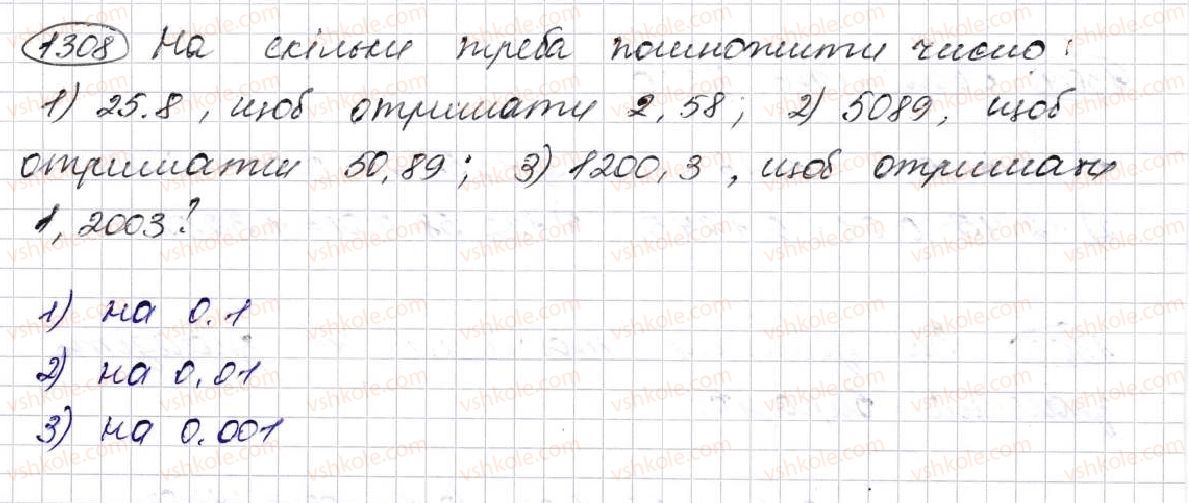 1308 На скільки треба помножити число:
1) 25.8, щоб отримати 2,58; 2) 5089, щоб
отримати 50,89; 3) 1200,3, щоб отримати
1,2003?
1) на 0.1
2) на 0,01
3) на 0.001